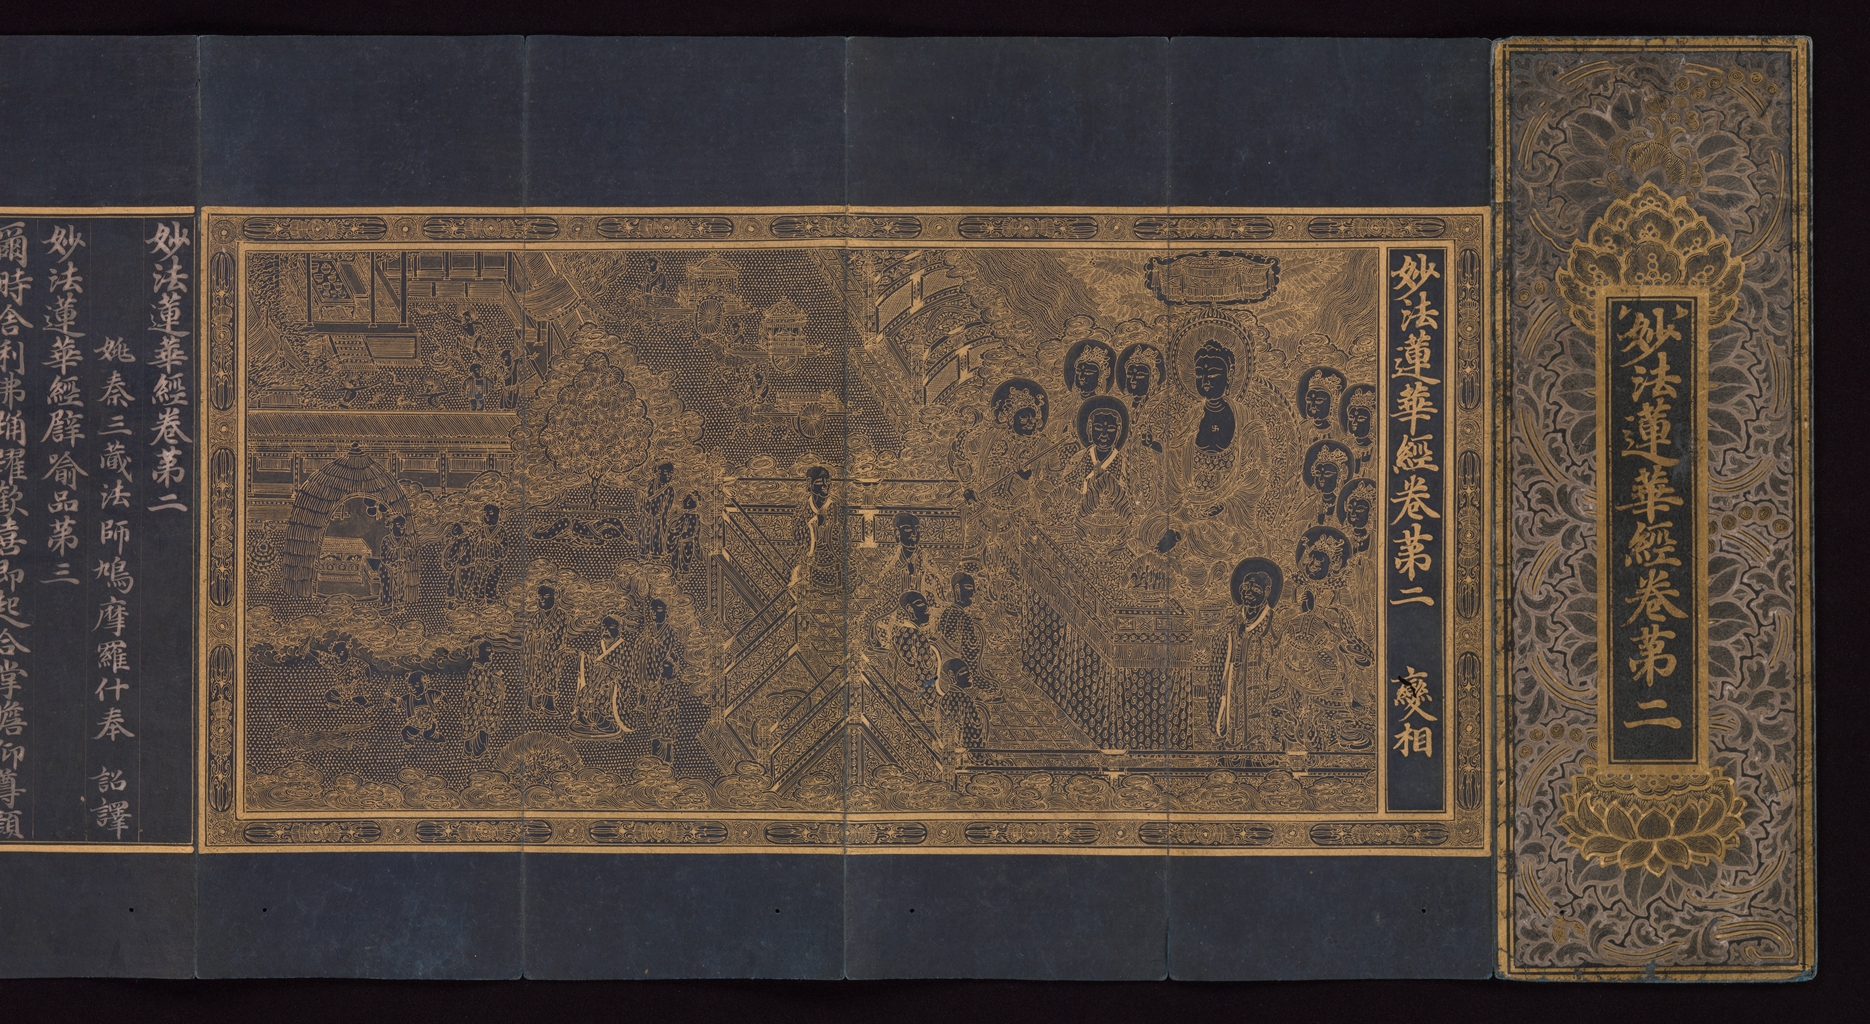 妙法蓮華經卷苐二
妙法蓮華經卷苐二　變相
妙法蓮華經卷苐二
姚秦三藏法師鳩摩羅什奉　詔譯
妙法蓮華經辟喻品苐三
爾時舍利弗踊躍歡喜即起合掌瞻仰尊顔